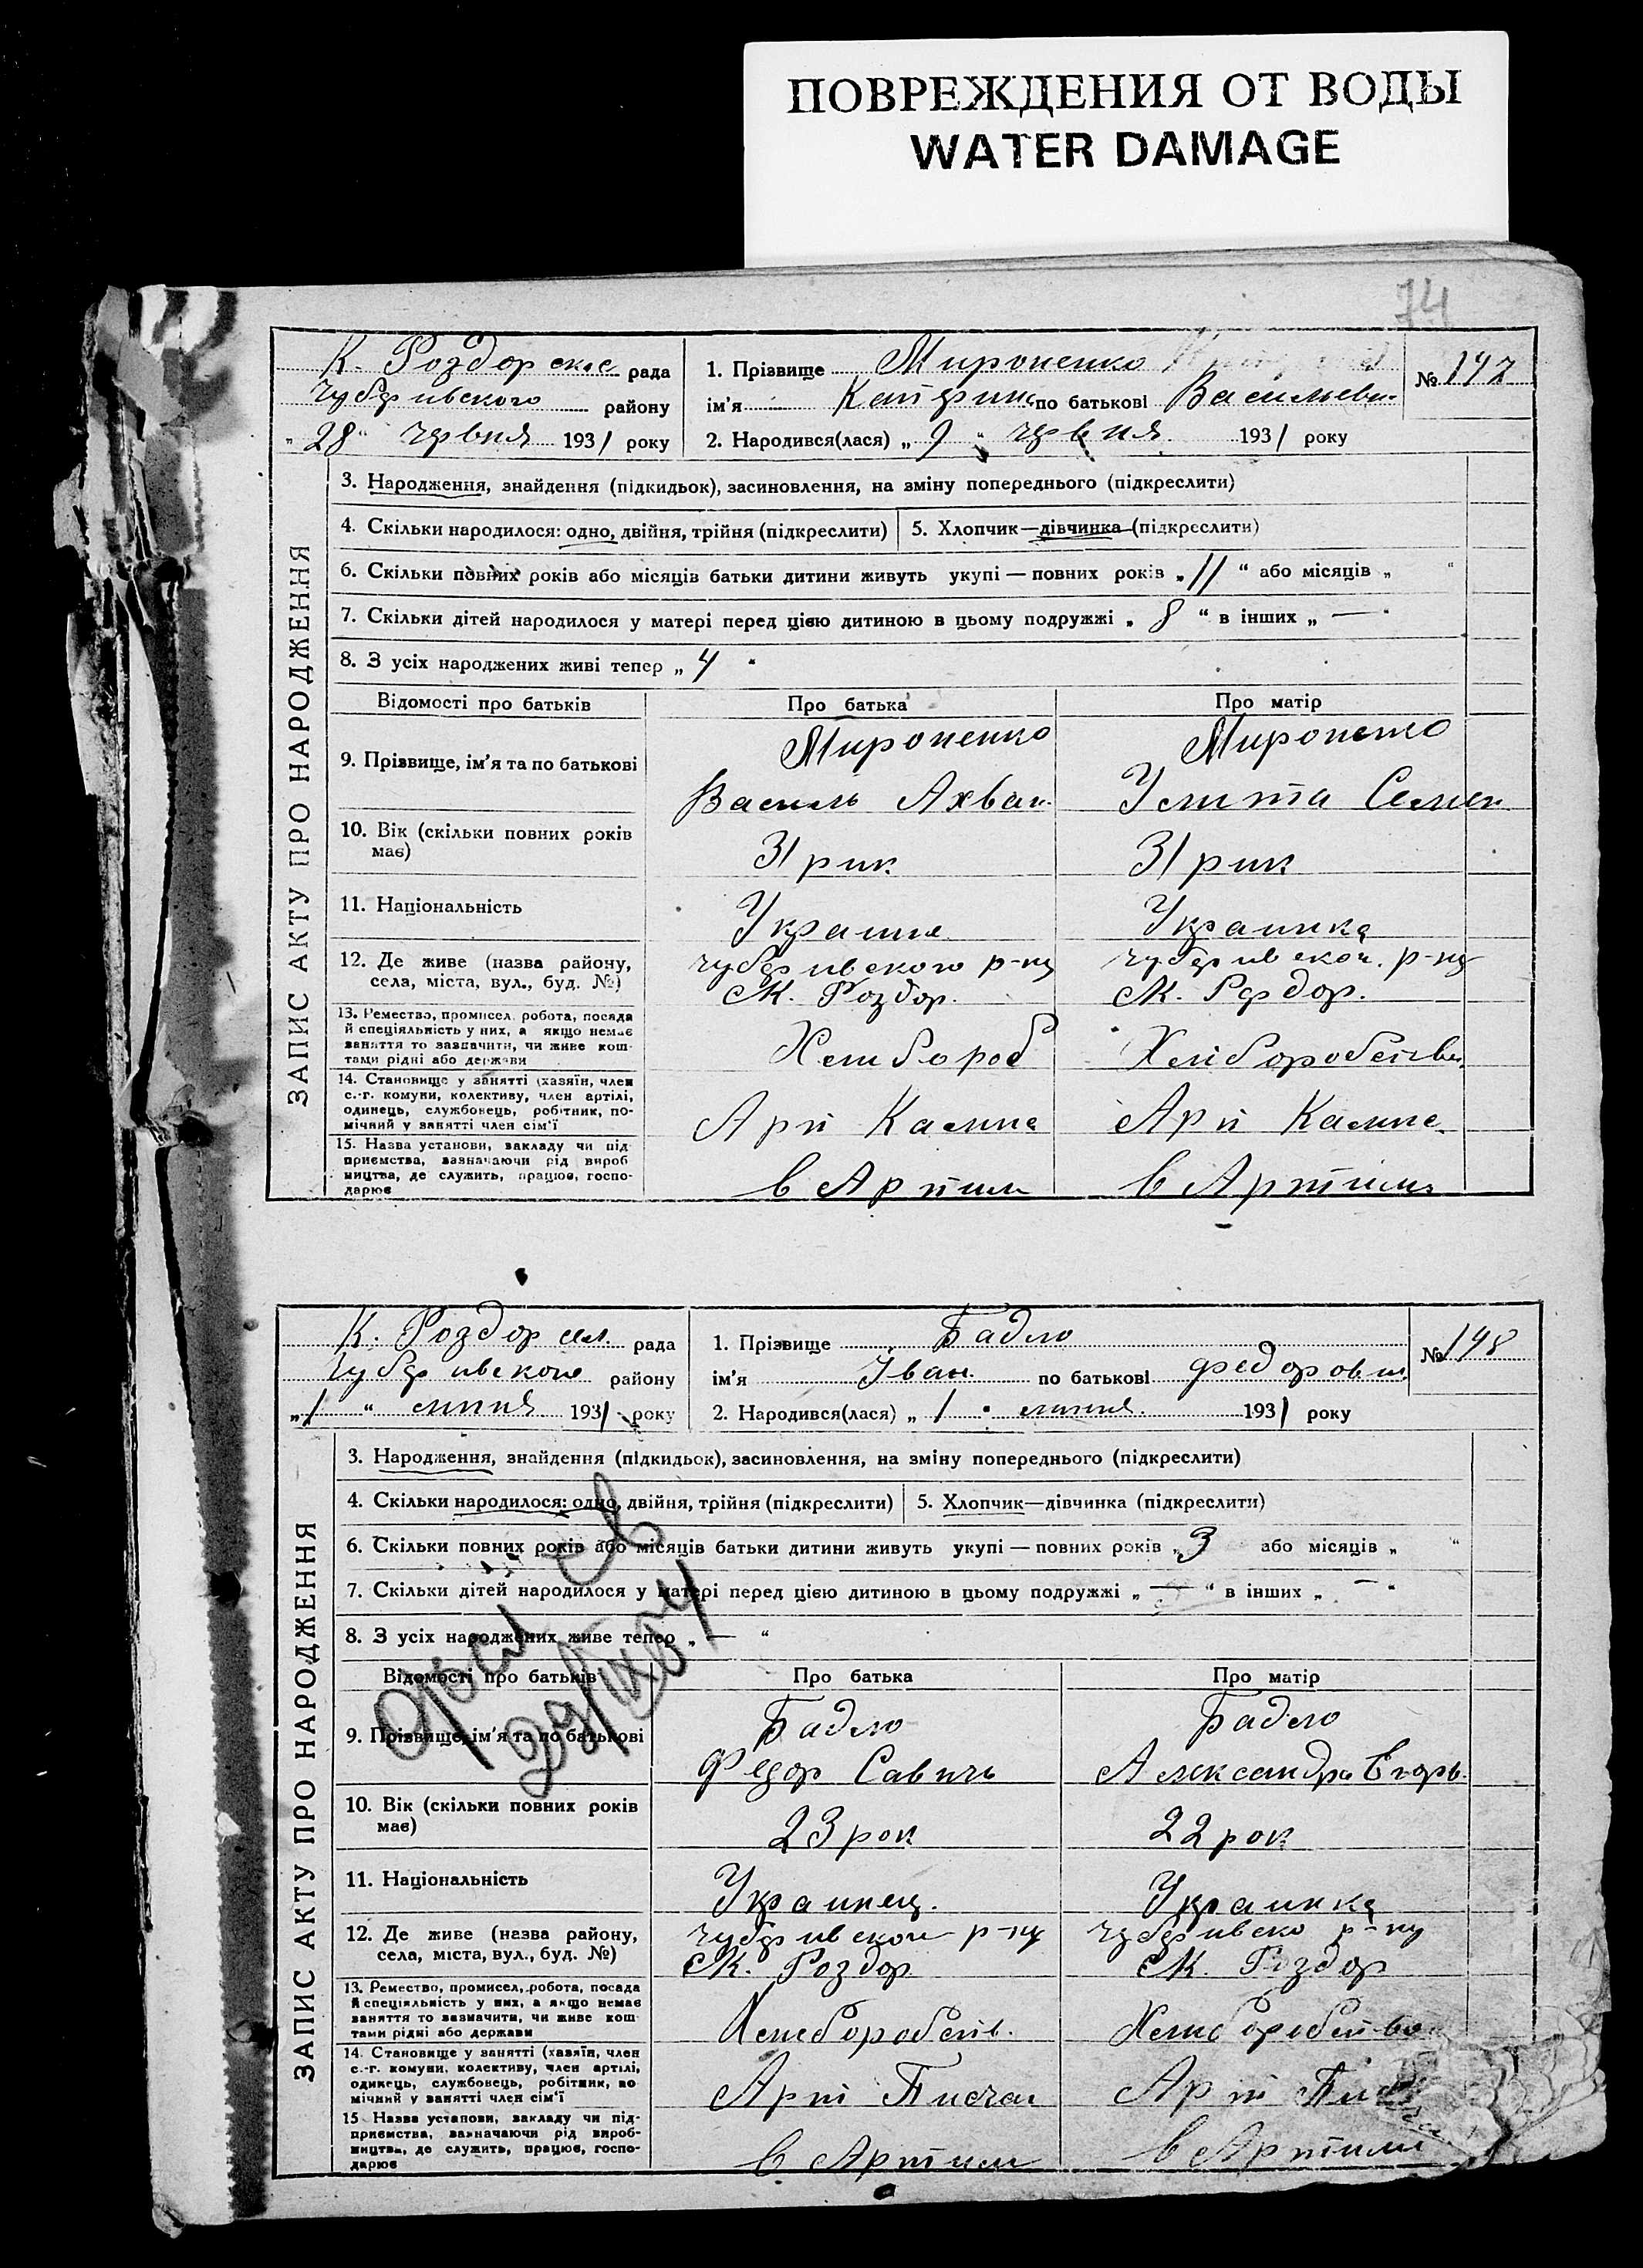 ПОВРЕЖДЕНИЯ ОТ ВОДЫ
WATER DAMAGE
74
ЗАПИС АКТУ ПРО НАРОДЖЕННЯ
К. Роздорске рада
Чубарівского району
„28“ червня 1931 року
1. Прізвище Мироненко
ім'я Катерина по батькові Васильевн.
№ 147
2. Народився(лася) „9“ червня 1931 року
3. Народження, знайдення (підкидьок), засиновлення, на зміну попереднього (підкреслити)
4. Скільки народилося: одно, двійня, трійня (підкреслити) 5. Хлопчик—дівчинка (підкреслити)
6. Скільки повних років або місяців батьки дитини живуть укупі — повних років „11“ або місяців „ “
7. Скільки дітей народилося у матері перед цією дитиною в цьому подружжі „8“ в інших „—“
8. З усіх народжених живі тепер „4“
Відомості про батьків Про батька Про матір
9. Прізвище, ім'я та по батькові
Мироненко Мироненко
Василь Ахван. Улита Семен
10. Вік (скільки повних років має)
31 рик 31 рик
11. Національність
Украине Украинка
12. Де живе (назва району, села, міста, вул., буд. №)
Чубарівского р-ну Чубарівског. р-ну
М. Роздор. М. Роздор.
13. Ремество, промисел, робота, посада й спеціяльність у них, а якщо немає заняття то зазначити, чи живе коштами рідні або держави
Хлибороб Хліборобство
14. Становище у занятті (хазяїн, член с.-г. комуни, колективу, член артілі, одинець, службовець, робітник, помічний у занятті член сім'ї
Арт Арт
15. Назва установи, закладу чи підприємства, зазначаючи рід виробництва, де служить, працює, господарює
в Артили в Артили
ЗАПИС АКТУ ПРО НАРОДЖЕННЯ
К. Роздор сел. рада
Чубарівского району
„1“ липня 1931 року
1. Прізвище Бадло
ім'я Іван по батькові Федорович
№ 148
2. Народився(лася) „1“ липня 1931 року
3. Народження, знайдення (підкидьок), засиновлення, на зміну попереднього (підкреслити)
4. Скільки народилося: одно, двійня, трійня (підкреслити) 5. Хлопчик—дівчинка (підкреслити)
6. Скільки повних років або місяців батьки дитини живуть укупі — повних років „3 або місяців „ “
7. Скільки дітей народилося у матері перед цією дитиною в цьому подружжі „—“ в інших „—“
8. З усіх народжених живе тепер „—“
Відомості про батьків Про батька Про матір
9. Прізвище, ім'я та по батькові
Бадло Бадло
Федор Савичь Александра Егорь.
10. Вік (скільки повних років має)
23 рок 22 рок
11. Національність
Украинец. Украинка
12. Де живе (назва району, села, міста, вул., буд. №)
Чубарівског р-ну Чубарівско р-ну
М. Роздор М. Роздор
13. Ремество, промисел, робота, посада й спеціяльність у них, а якщо немає заняття то зазначити, чи живе коштами рідні або держави
Хлиборобств. Хлиборобство
14. Становище у занятті (хазяїн, член с.-г. комуни, колективу, член артілі, одинець, службовець, робітник, помічний у занятті член сім'ї
Арт Арт
15. Назва установи, закладу чи підприємства, зазначаючи рід виробництва, де служить, працює, господарює
в Артили в Артили